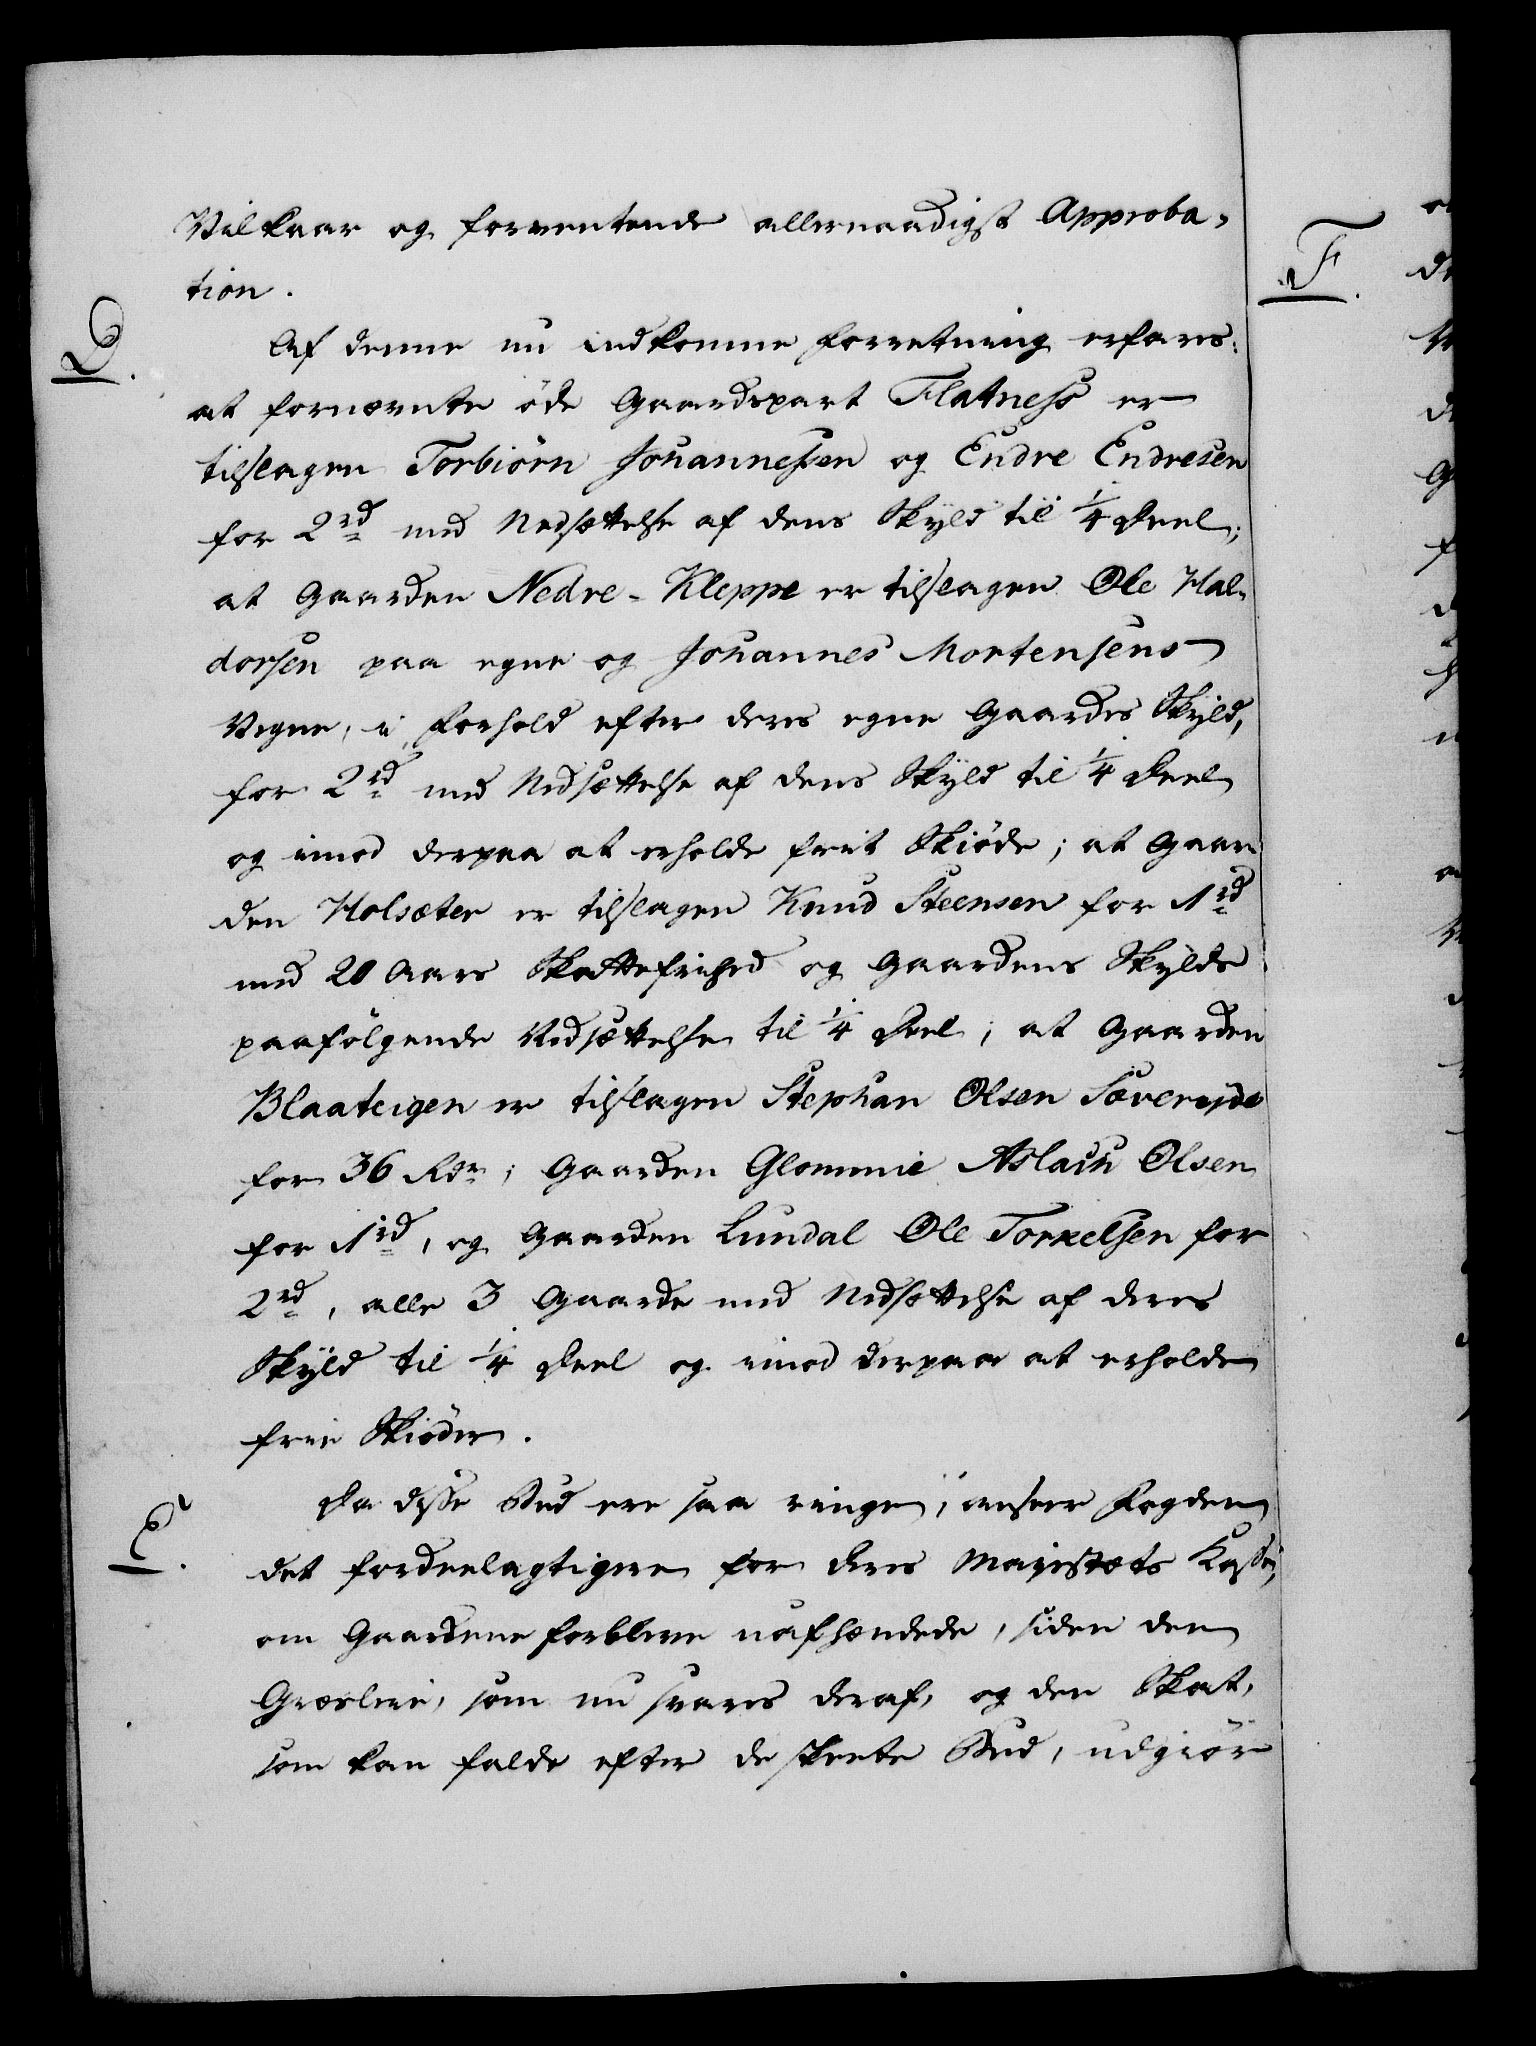 Vilkaar og forventende allernaadigst Approba-
tion.
D.
Af denne nu indkomne Forretning erfares:
at fornævnte öde Gaardspart Flatness er
tilslagen Torbiörn Johannessen og Endre Endresen
for 2 rd med Nedsættelse af dens Skyld til 1/4 Deel;
at Gaarden Nedre-Kleppe er tilslagen Ole Hal-
dorsen paa egne og Johannes Mortensens
Vegne, i Forhold efter deres egne Gaardes Skyld,
for 2 rd med Nedsættelse af dens Skyld til 1/4 Deel
og imod derpaa at erholde frit Skiöde; at Gaar-
den Holsæter er tilslagen Knud Steensen for 1 rd
med 20 Aars Skattefrihed og Gaardens Skylds
paafölgende Nedsættelse til 1/4 Deel; at Gaarden
Blaateigen er tilslagen Stephan Olsen Sævereide
for 36 Rdr; Gaarden Glommie Aslach Olsen
for 1 rd, og Gaarden Lundal Ole Torkelsen for
2 rd, alle 3 Gaarde med Nedsættelse af deres
Skyld til 1/4 Deel og imod derpaa at erholde
frie Skiöder.
E.
Da disse Bud ere saa ringe, anseer Fogden
det fordeelagtigere for Deres Majestæts Kasse,
om Gaardene forblive uafhændede, siden den
Græsleie, som nu svares deraf, og den Skat,
som kan falde efter de skeete Bud, udgiör
F.